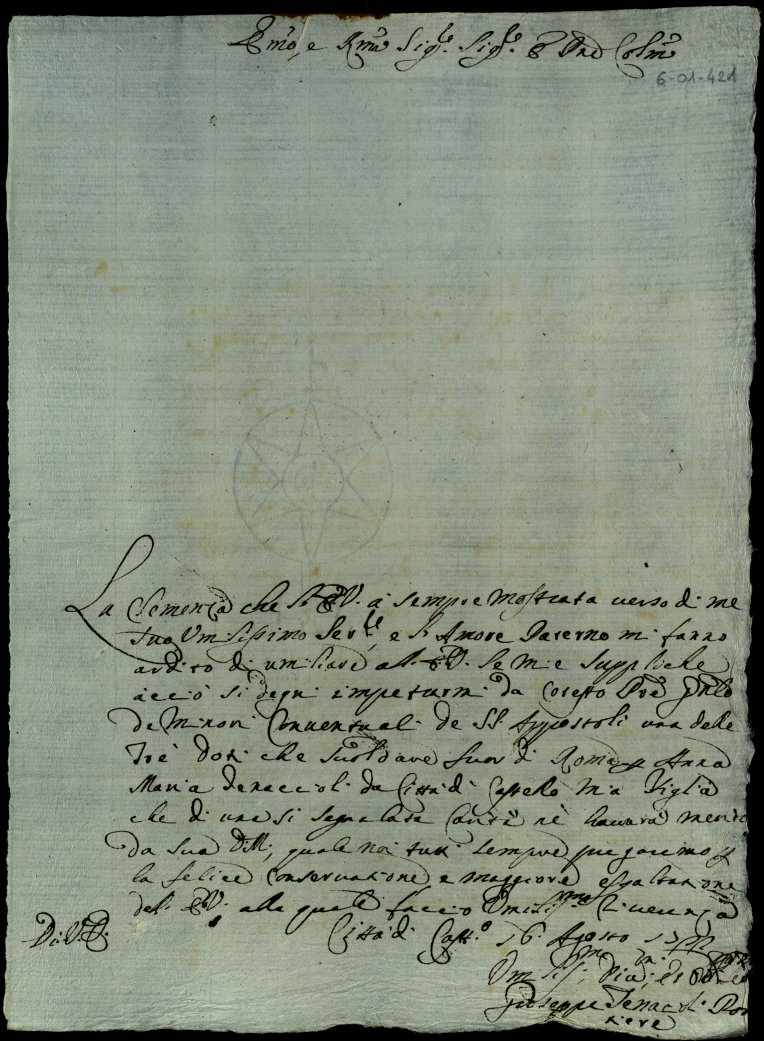 Emo, e Rmo Sigre Sigre e Pne Colmo
6-01-421
La Clemenza che l'E.V. à sempre mostrata verso di me
suo Umilissimo Serre e l'Amore Paterno mi fanno
ardito di umiliare all'E.V. le mie suppliche
acciò si degni impetrarmi da cotesto Pre Gnle
de Minori Conventuali de SS. Appostoli una delle
Trè doti che suol dare fuor di Roma p Anna
Maria Tenaccioli da Città di Castello mia Figlia
che di una si segnalata Carità nè haverà merito
da sua D.M., quale noi tutti sempre pregaremo p
la felice Conservatione e maggiore esaltazione
dell'E.V. alla quale faccio Umilissma Riverenza
Di V.E.
Città di Castlo 16 Agosto
Umilissmo, Divmo, ed
Giuseppe Tenaccioli